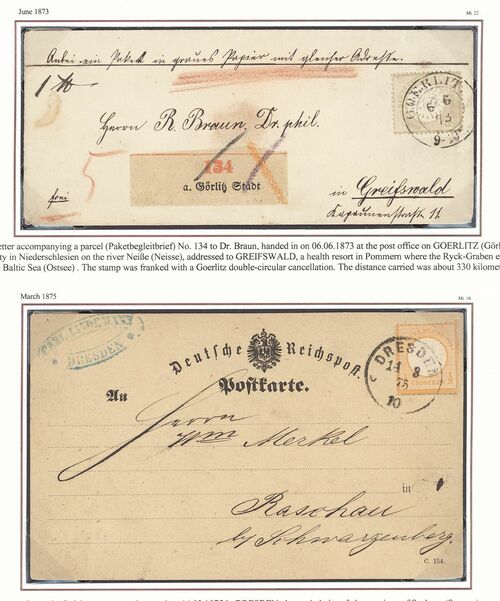 June 1873
Mi. 22
Anbei ein Paket in graues Papier mit gleicher Adresse.
Herrn R. Braun, Dr. phil.
GOERLITZ
6 6
73
9-10
134
a. Görlitz Stadt
5
frei
in Greifswald
Kapaunenstraße 11
etter accompanying a parcel (Paketbegleitbrief) No. 134 to Dr. Braun, handed in on 06.06.1873 at the post office on GOERLITZ (Görl
ity in Niederschlesien on the river Neiße (Neisse), addressed to GREIFSWALD, a health resort in Pommern where the Ryck-Graben e
Baltic Sea (Ostsee) . The stamp was franked with a Goerlitz double-circular cancellation. The distance carried was about 330 kilome
March 1875
Mi. 18
CARL LIEDEMANN
DRESDEN
Deutsche Reichspost.
Postkarte.
DRESDEN
14 3
75
10
GROSCHEN
1/2
An
Herrn
Wm Merkel
in
Raschau
by Schwarzenberg.
C. 154.